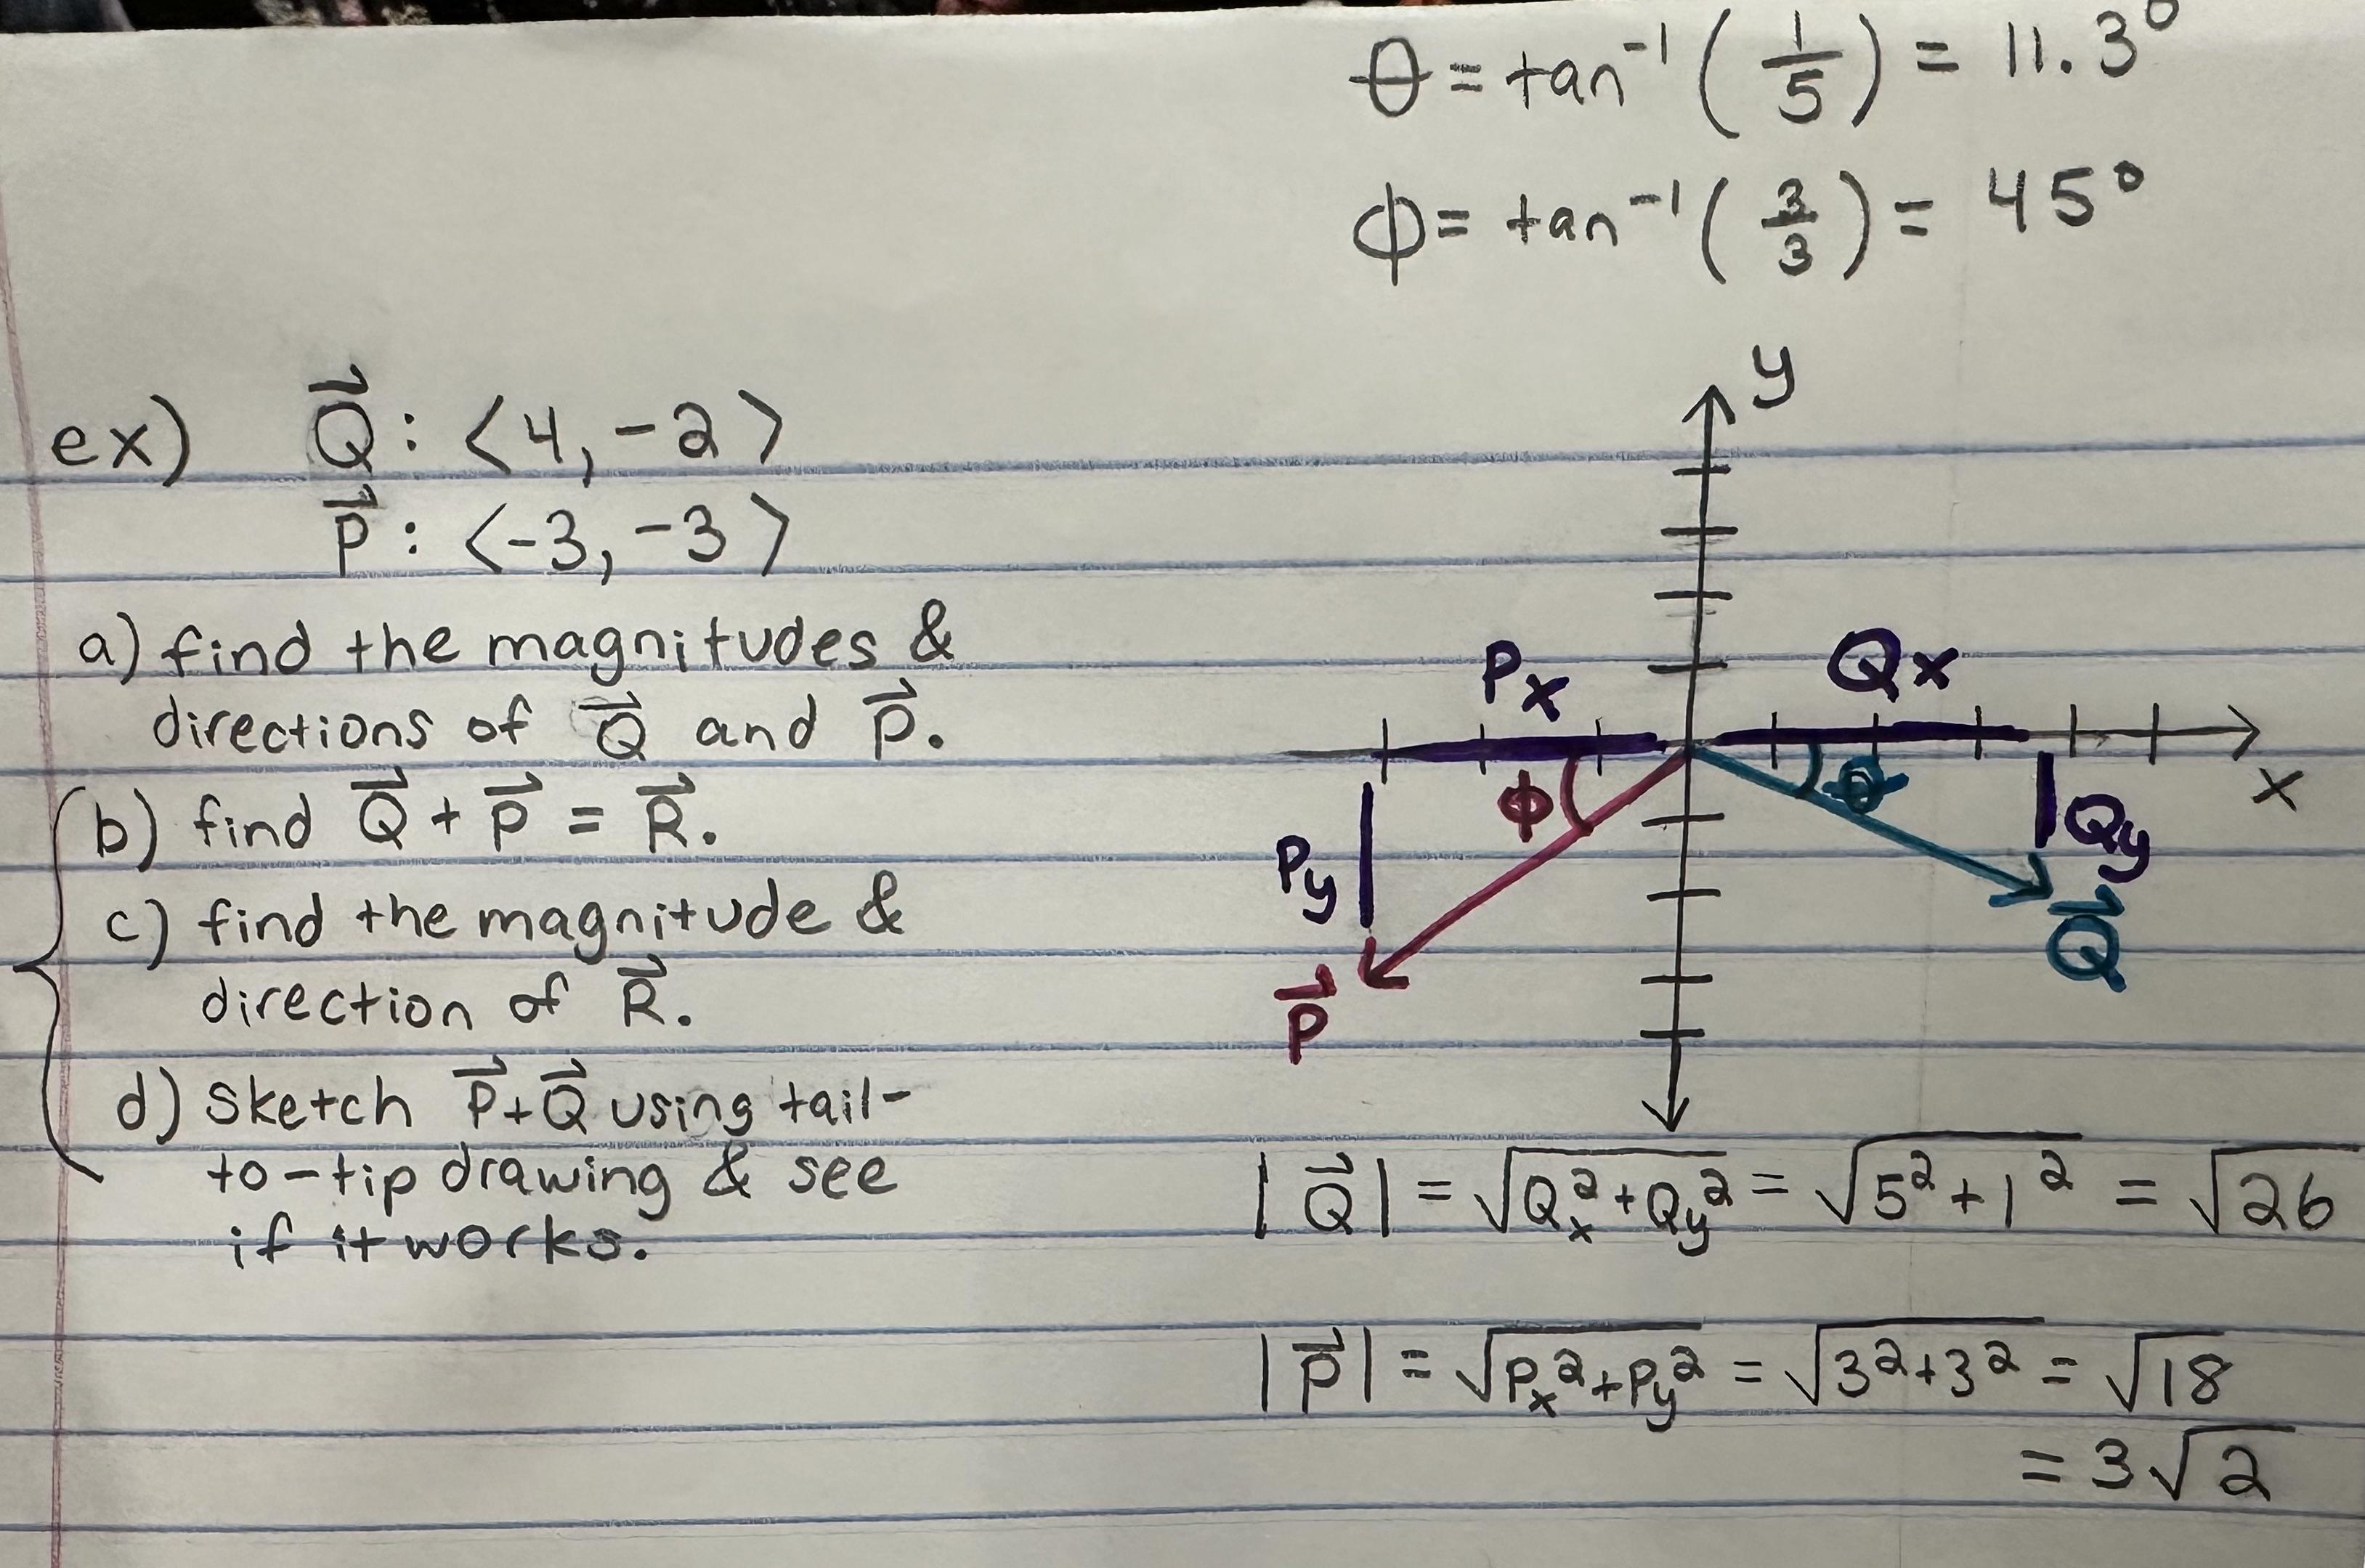 θ = tan⁻¹ ( 1/5 ) = 11.3°
ϕ = tan⁻¹ ( 3/3 ) = 45°
ex) Q⃗ : ⟨4, -2⟩
P⃗ : ⟨-3, -3⟩
a) find the magnitudes &
directions of Q⃗ and P⃗.
b) find Q⃗ + P⃗ = R⃗.
c) find the magnitude &
direction of R⃗.
d) sketch P⃗+Q⃗ using tail-
to-tip drawing & see
if it works.
y
Px Qx
x
ϕ θ
Py Qy
P⃗ Q⃗
|Q⃗| = √(Qx² + Qy²) = √(5² + 1²) = √26
|P⃗| = √(Px² + Py²) = √(3² + 3²) = √18
= 3√2